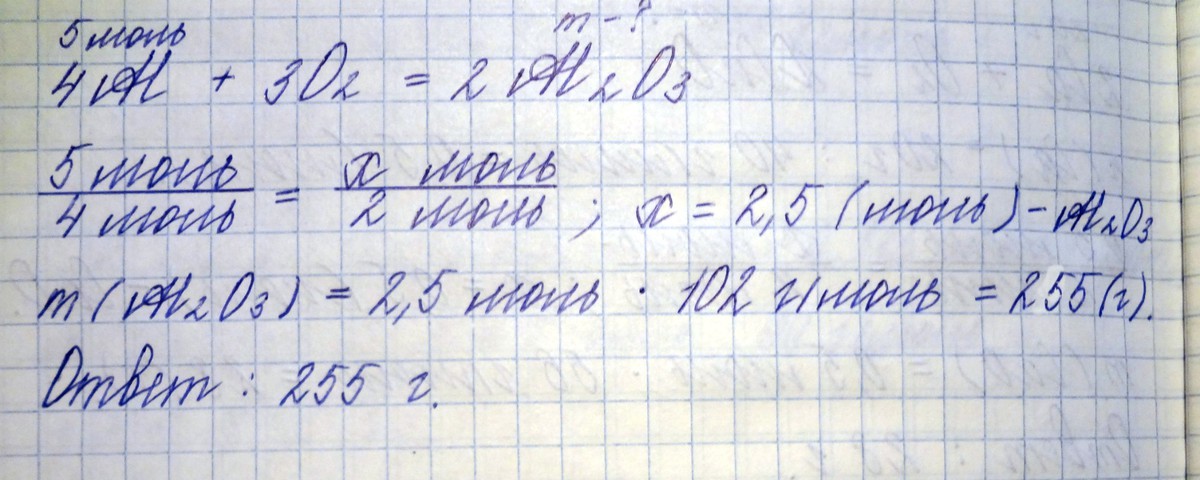 5 моль m - ?
4Al + 3O₂ = 2Al₂O₃
5 моль / 4 моль = x моль / 2 моль ; x = 2,5 (моль) - Al₂O₃
m(Al₂O₃) = 2,5 моль · 102 г/моль = 255(г).
Ответ : 255 г.